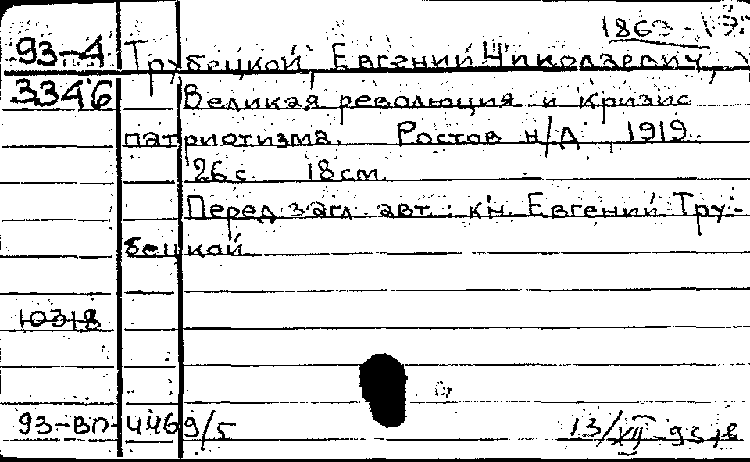 1863-19
93-4 Трубецкой, Евгений Николаевич,
3346 Великая революция и кризис
патриотизма. Ростов н/Д, 1919.
26 с. 18 см.
Перед загл. авт.: кн. Евгений Тру-
бецкой
10318
93-ВП-4469/5 13/XII